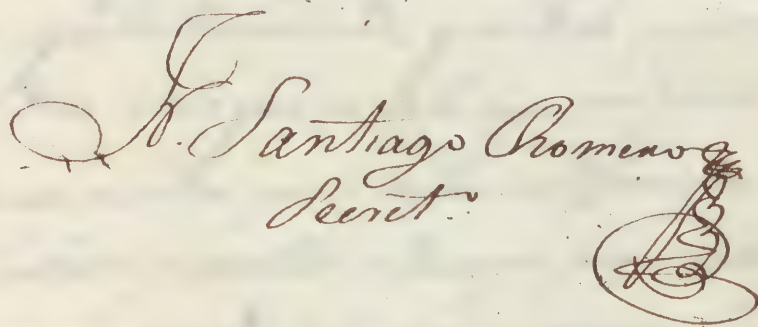 J. Santiago Romero
Secret.º